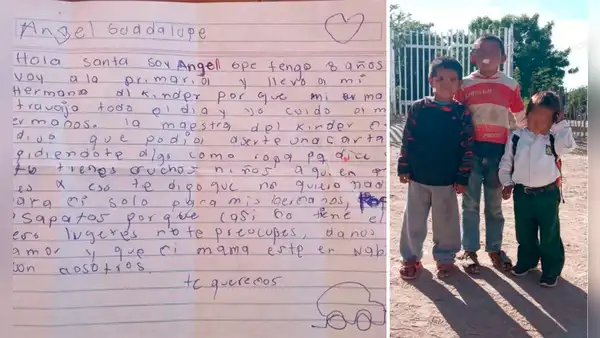 Angel Guadalupe
Hola santa soy Angel ope tengo 8 años
voy a la primaria y llevo a mi
Hermano al kinder por que mi ma
travaja todo el dia y yo cuido a m
ermanos. la maestra del kinder
dijo que podia aserte una carta
pidiendote algo como ropa
tu tienes muchos niños a quien
es x eso te digo que no quiero nad
para mi solo para mis hermanos,
sapatos por que casi no tene
no te preocupes, danos
amor y que mi mama este en nab
con nosotros
te queremos